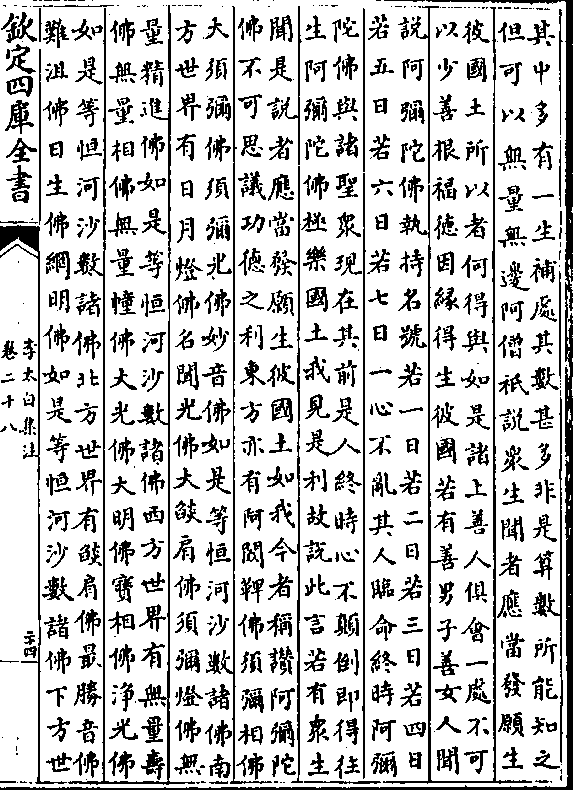 其中多有一生補處其數甚多非是算數所能知之
但可以無量無邊阿僧祇説衆生聞者應當發願生
彼國土所以者何得與如是諸上善人俱會一處不可
以少善根福德因緣得生彼國若有善男子善女人聞
説阿彌陀佛執持名號若一日若二日若三日若四日
若五日若六日若七日一心不亂其人臨命終時阿彌
陀佛與諸聖衆現在其前是人終時心不顛倒即得往
生阿彌陀佛極樂國土我見是利故説此言若有衆生
聞是説者應當發願生彼國土如我今者稱讚阿彌陀
佛不可思議功德之利東方亦有阿閦鞞佛須彌相佛
大須彌佛須彌光佛妙音佛如是等恒河沙數諸佛南
方世界有日月燈佛名聞光佛大燄肩佛須彌燈佛無
量精進佛如是等恒河沙數諸佛西方世界有無量壽
佛無量相佛無量幢佛大光佛大明佛寶相佛淨光佛
如是等恒河沙數諸佛北方世界有燄肩佛最勝音佛
難沮佛日生佛網明佛如是等恒河沙數諸佛下方世
欽定四庫全書
李太白集注
卷二十八
二十四